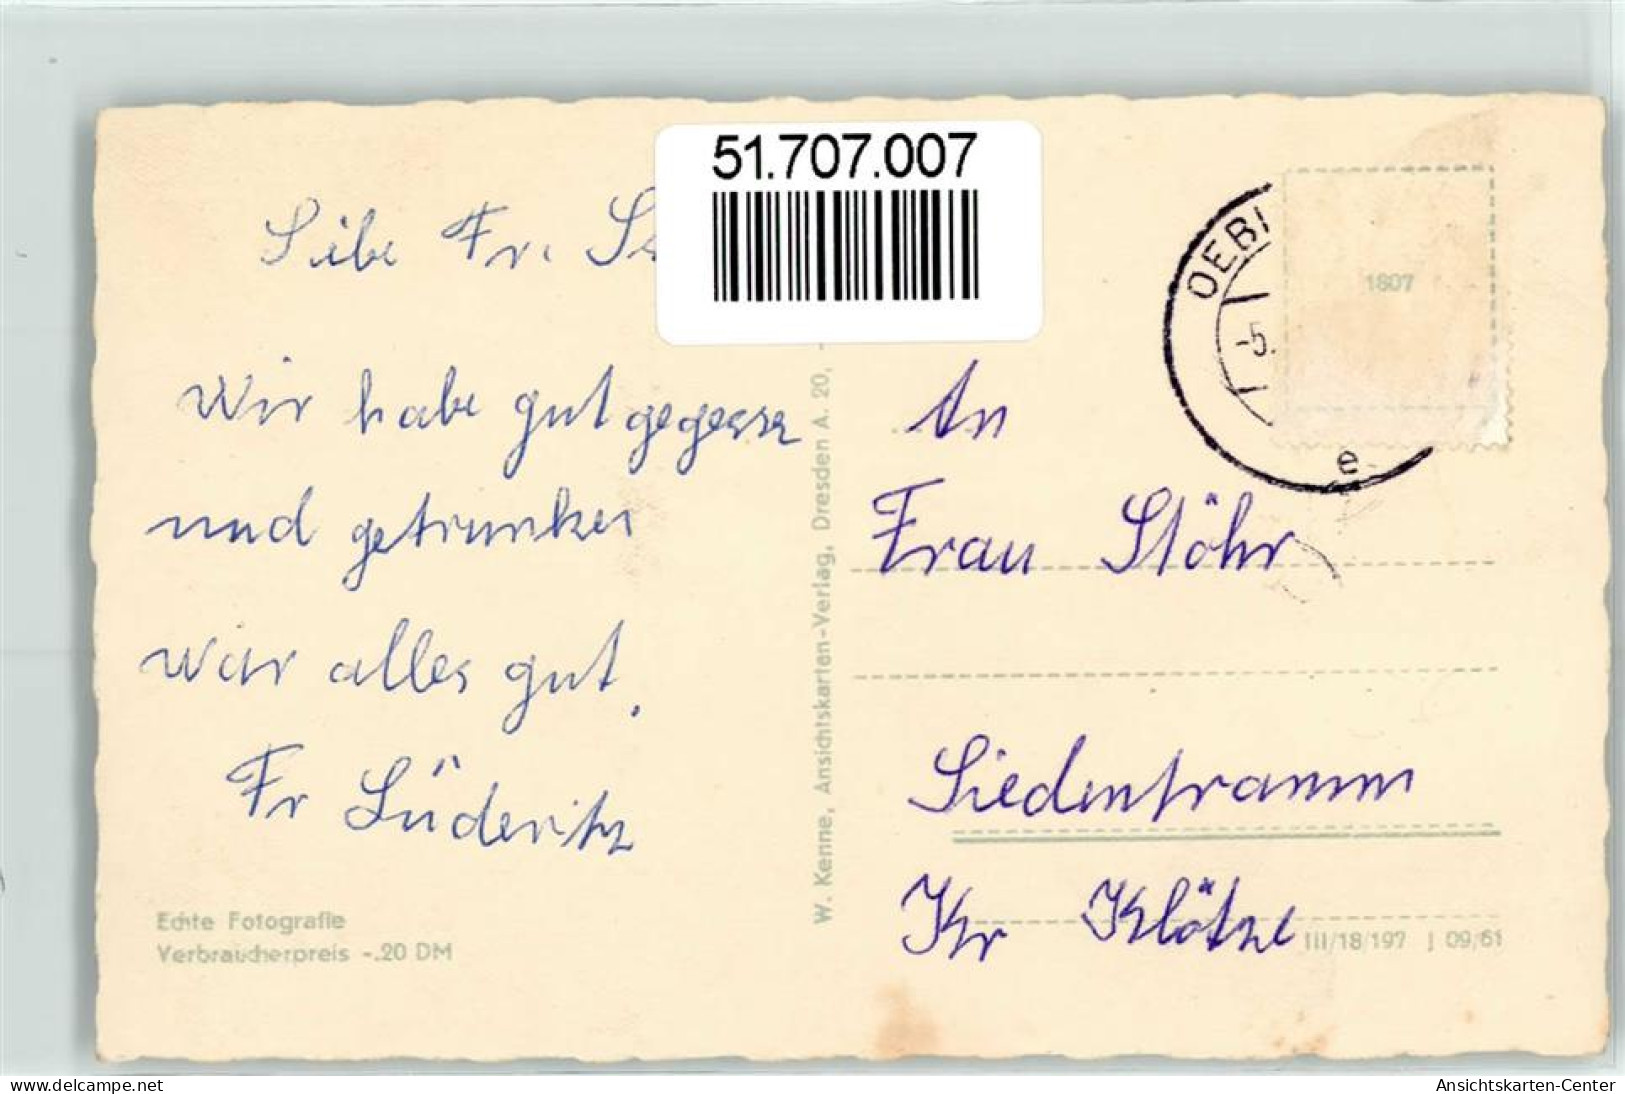 51.707.007
Libe Fr. St
Wir habe gut gegesse
und getrunken
war alles gut.
Fr Lüderitz
Echte Fotografie
Verbraucherpreis -.20 DM
W. Kenne, Ansichtskarten-Verlag, Dresden A. 20,
OEBI
-5.
e
1807
An
Frau Stöhr
Siedentramm
Kr Klötze
III/18/197 J 09/61
www.delcampe.net
Ansichtskarten-Center